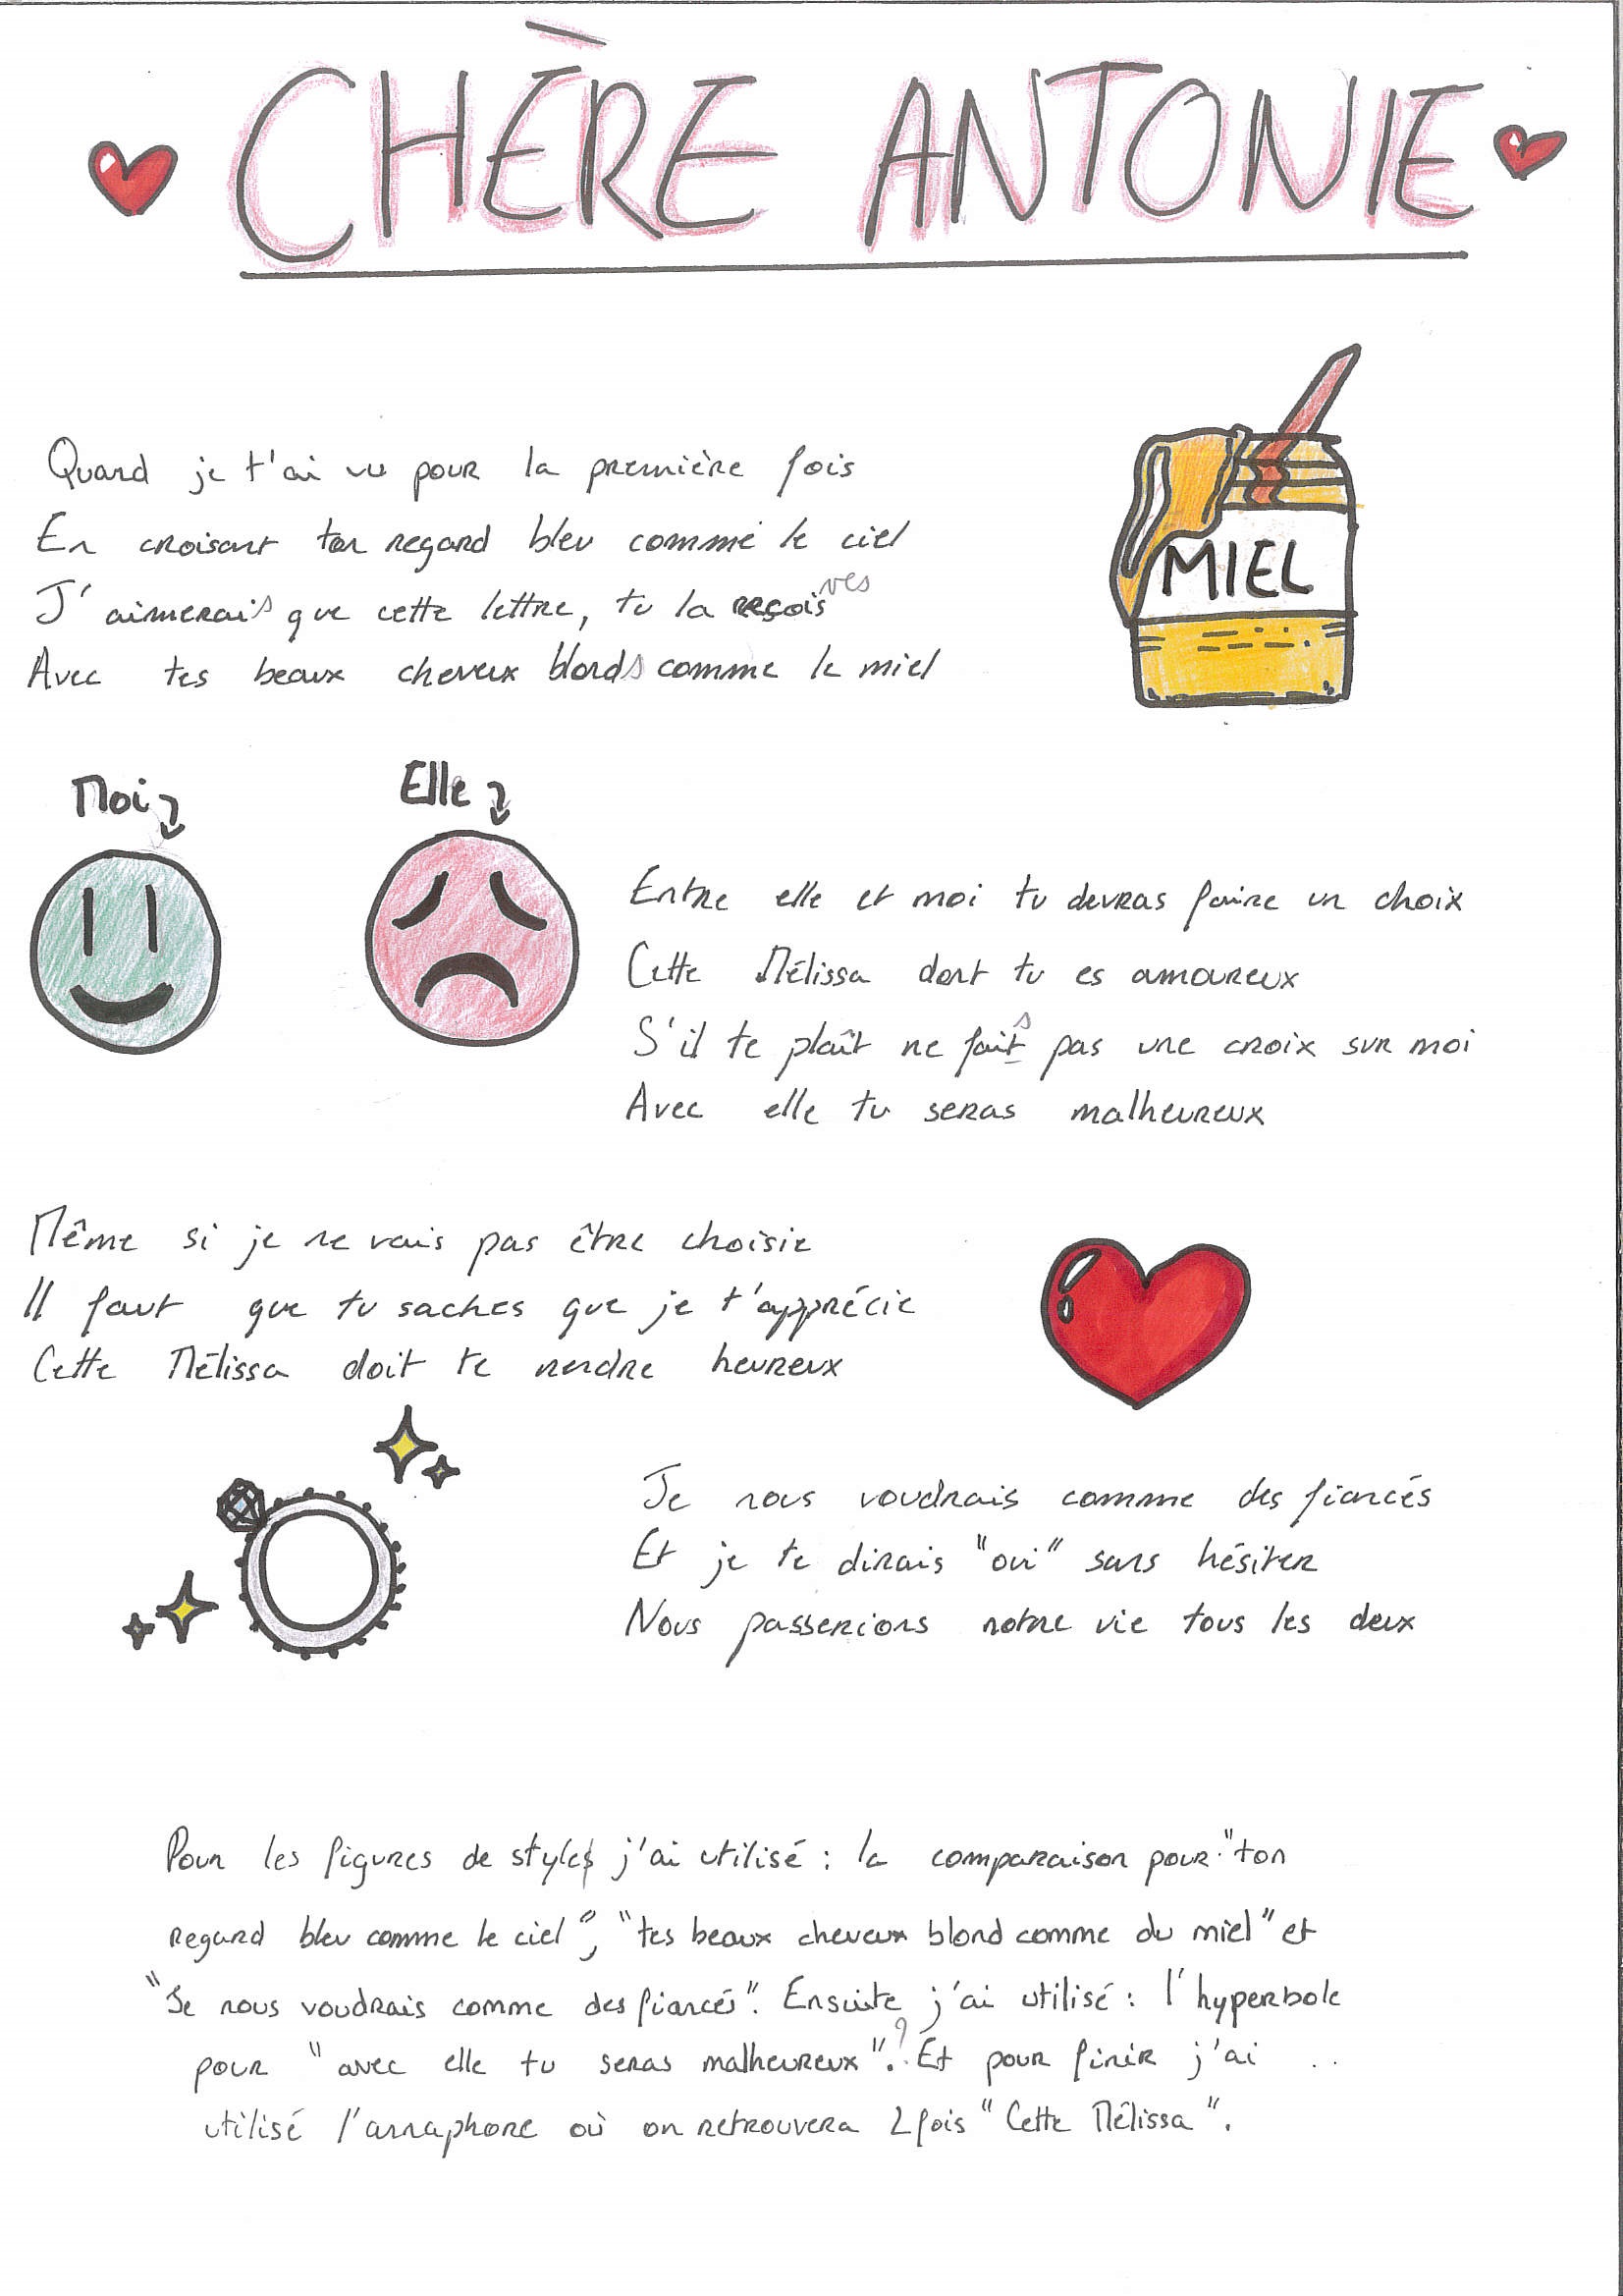 CHÈRE ANTONIE
Quand je t'ai vu pour la première fois
En croisant ton regard bleu comme le ciel
J'aimerais que cette lettre, tu la reçoisves
Avec tes beaux cheveux blonds comme le miel
MIEL
Moi
Elle
Entre elle et moi tu devras faire un choix
Cette Mélissa dont tu es amoureux
S'il te plaît ne faits pas une croix sur moi
Avec elle tu seras malheureux
Même si je ne vais pas être choisie
Il faut que tu saches que je t'apprécie
Cette Mélissa doit te rendre heureux
Je nous voudrais comme des fiancés
Et je te dirais "oui" sans hésiter
Nous passerions notre vie tous les deux
Pour les figures de styles j'ai utilisé : la comparaison pour "ton
regard bleu comme le ciel", "tes beaux cheveux blond comme du miel" et
"Je nous voudrais comme des fiancés". Ensuite j'ai utilisé : l'hyperbole
pour "avec elle tu seras malheureux".? Et pour finir j'ai
utilisé l'annaphore où on retrouvera 2 fois "Cette Mélissa".